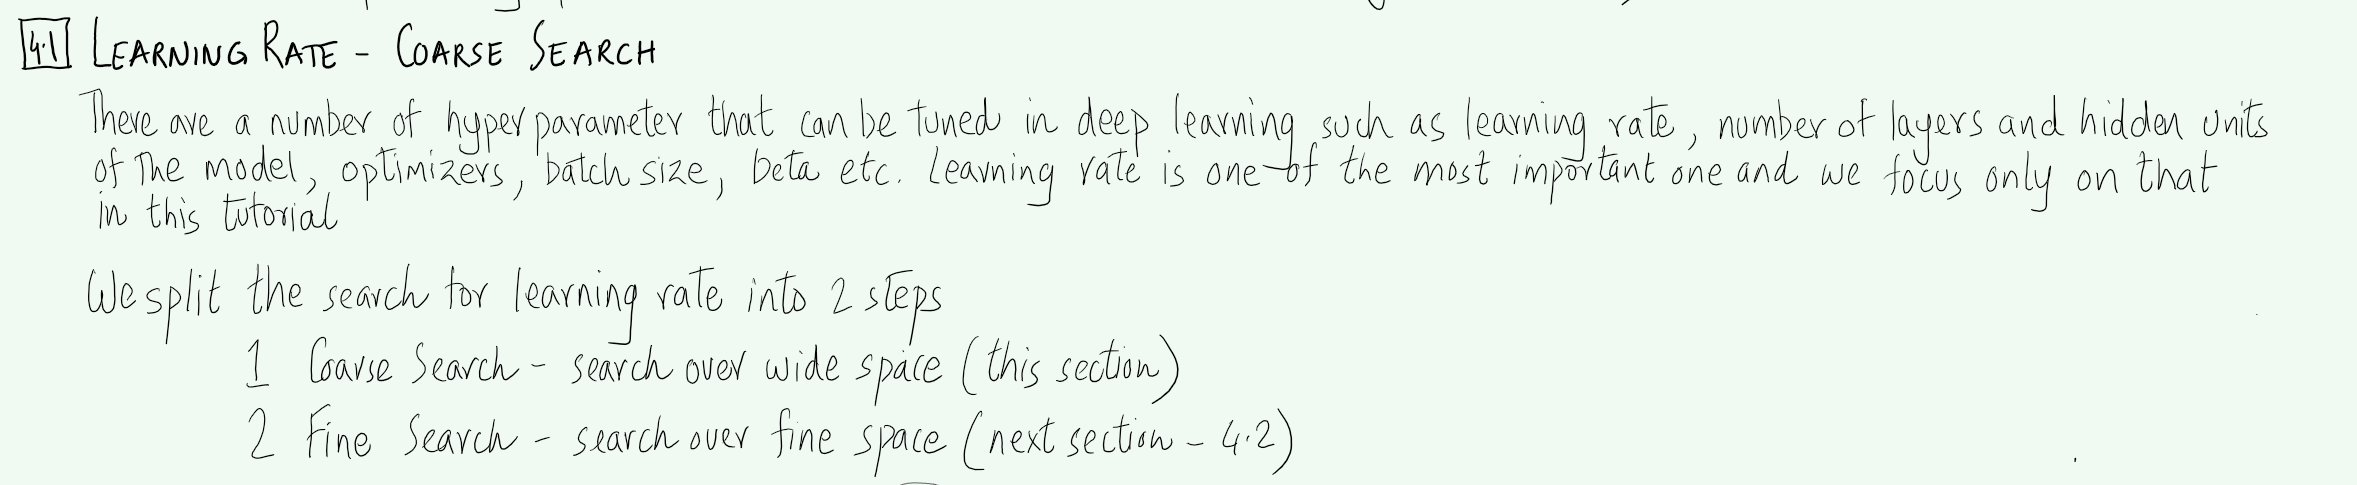 4.1 LEARNING RATE - COARSE SEARCH
There are a number of hyperparameter that can be tuned in deep learning such as learning rate, number of layers and hidden units
of the model, optimizers, batch size, beta etc. Learning rate is one of the most important one and we focus only on that
in this tutorial
We split the search for learning rate into 2 steps
1 Coarse Search - search over wide space (this section)
2 Fine Search - search over fine space (next section - 4.2)